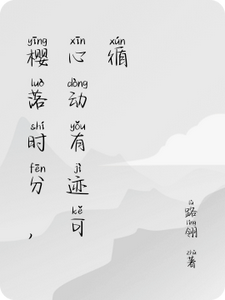 yīng luò shí fēn
樱落时分，
xīn dòng yǒu jì kě
心动有迹可
xún
循
路翎 著